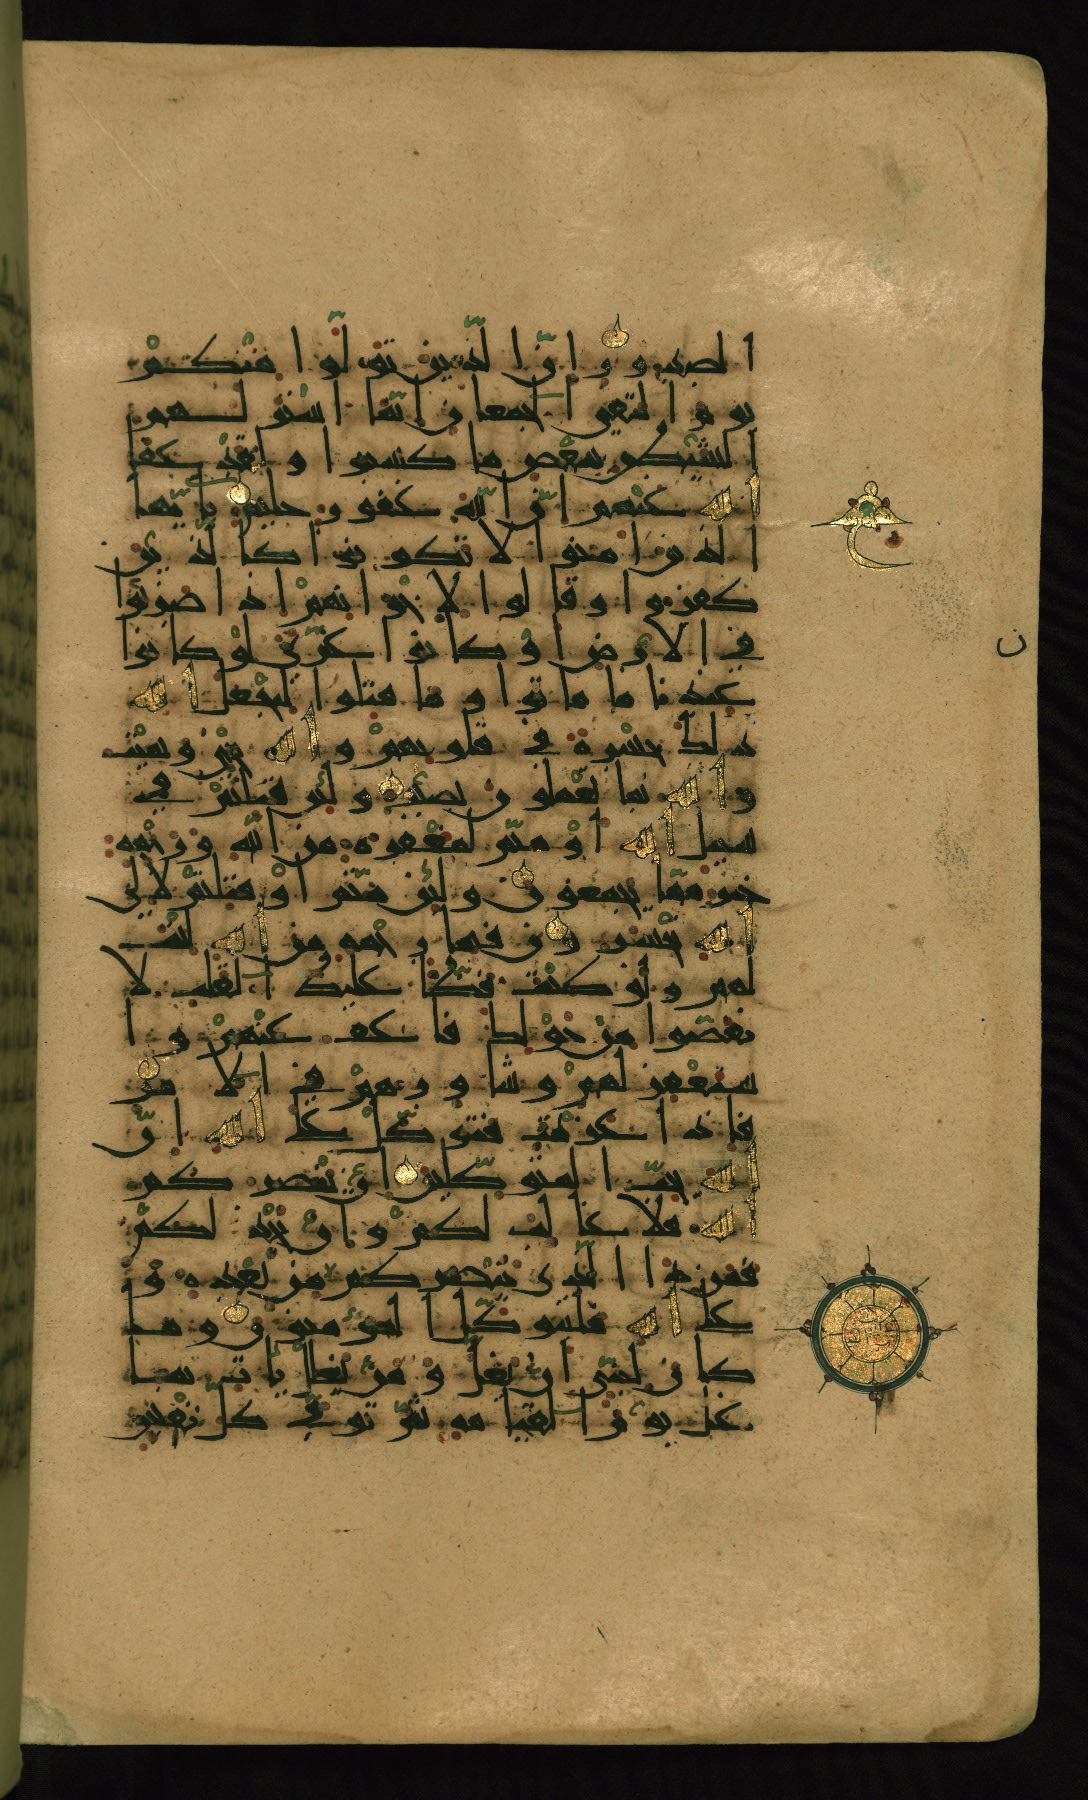 الصدور ان الذين تولوا منكم
يوم التقى الجمعان انما استزلهم
الشيطن ببعض ما كسبوا ولقد عفا
الله عنهم ان الله غفور حليم يايها
الذين امنوا لا تكونوا كالذين
كفروا وقالوا لاخوانهم اذا ضربوا
في الارض او كانوا غزى لو كانوا
عندنا ما ماتوا وما قتلوا ليجعل الله
ذلك حسرة في قلوبهم والله يحيى ويميت
والله بما تعملون بصير ولئن قتلتم في
سبيل الله او متم لمغفرة من الله ورحمة
خير مما يجمعون ولئن متم او قتلتم لالى
الله تحشرون فبما رحمة من الله لنت
لهم ولو كنت فظا غليظ القلب لا
نفضوا من حولك فاعف عنهم وا
ستغفر لهم وشاورهم في الامر
فاذا عزمت فتوكل على الله ان
الله يحب المتوكلين ان ينصركم
الله فلا غالب لكم وان يخذلكم
فمن ذا الذي ينصركم من بعده و
على الله فليتوكل المؤمنون وما
كان لنبي ان يغل ومن يغلل يات بما
غل يوم القيامة ثم توفى كل نفس
ن